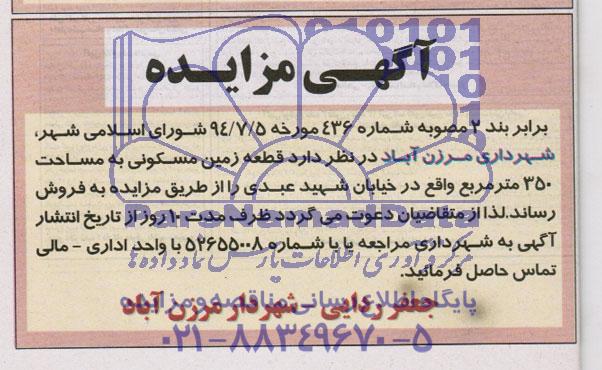 آگهی مزایده
برابر بند ۲ مصوبه شماره ۴۳۶ مورخه ۹۴/۷/۵ شورای اسلامی شهر،
شهرداری مرزن آباد در نظر دارد قطعه زمین مسکونی به مساحت
۳۵۰ مترمربع واقع در خیابان شهید عبدی را از طریق مزایده به فروش
رساند. لذا از متقاضیان دعوت می گردد ظرف مدت ۱۰ روز از تاریخ انتشار
آگهی به شهرداری مراجعه یا با شماره ۵۲۶۵۵۰۰۸ با واحد اداری - مالی
تماس حاصل فرمائید.
جعفر زدایی - شهردار مرزن آباد
ParsNamadData
مرکز فرآوری اطلاعات پارس نماد داده ها
پایگاه اطلاع رسانی مناقصه و مزایده
۰۲۱-۸۸۳۴۹۶۷۰-۵